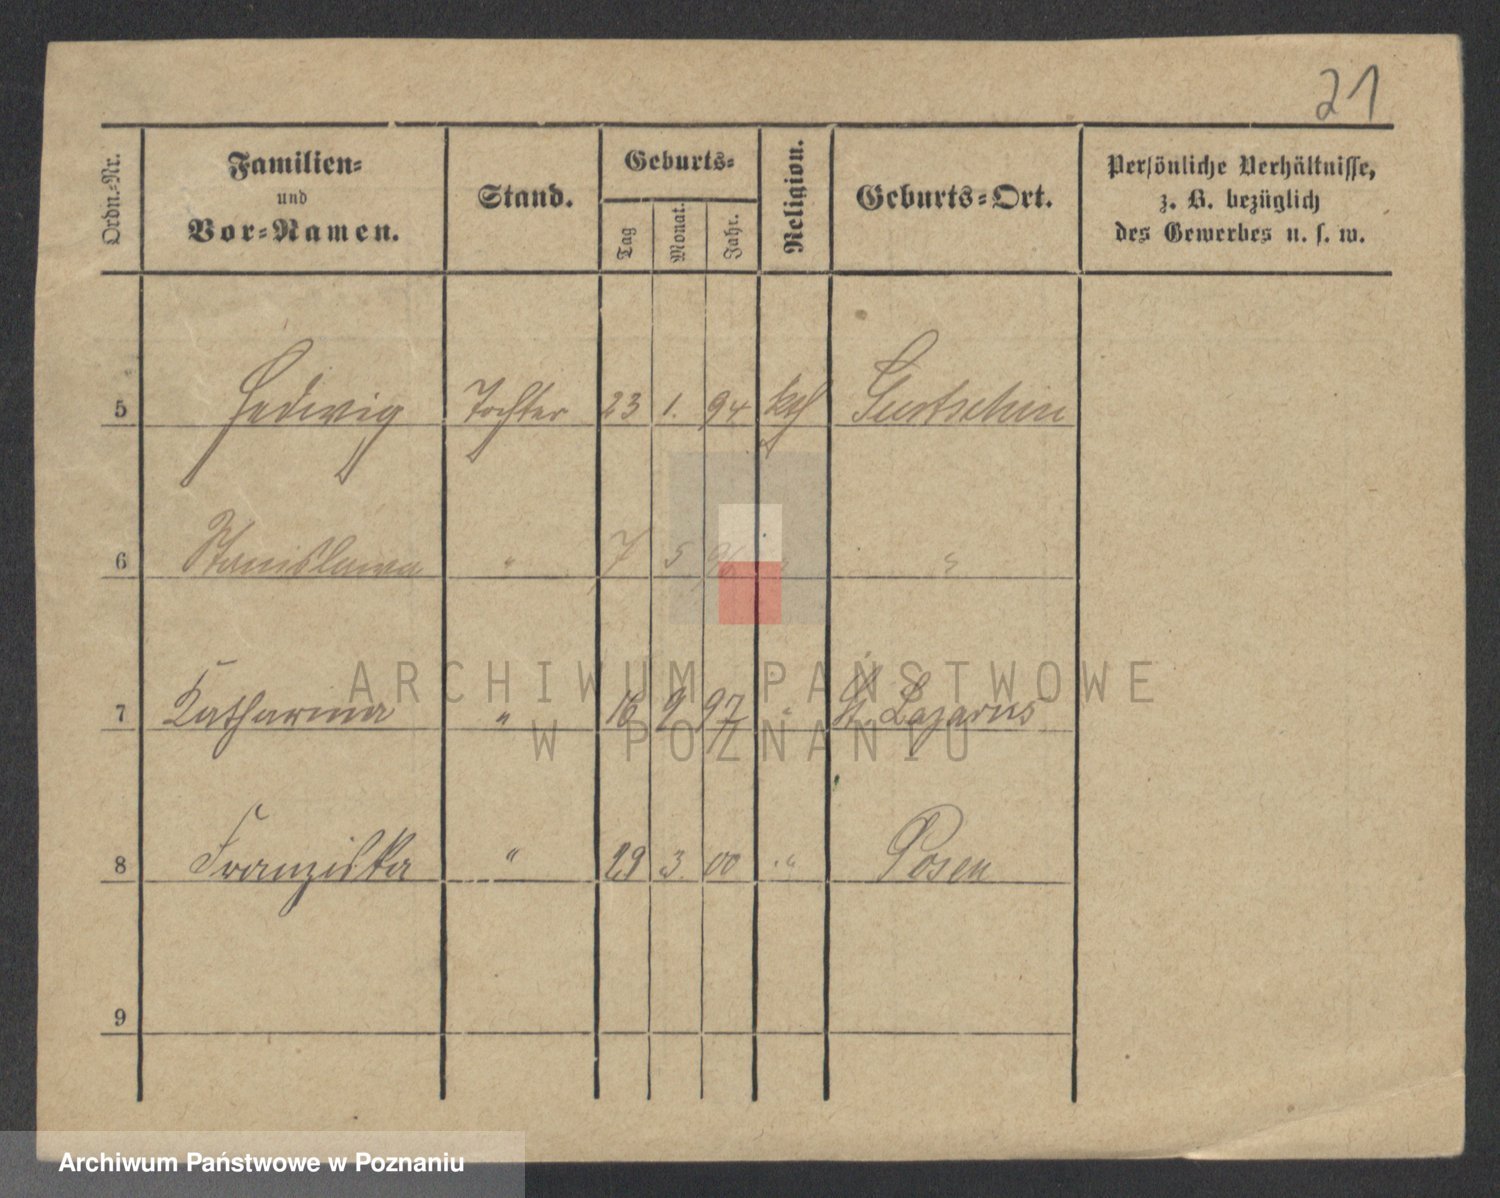 21
Ordn.-Nr. Familien- und Vor-Namen. Stand. Geburts- Tag Monat. Jahr. Religion. Geburts-Ort. Persönliche Verhältnisse, z. B. bezüglich des Gewerbes u. s. w.
5 Hedwig Tochter 23 1. 94 kth Gurtschin
6 Stanislawa " 7 5 96 " "
7 Katharina " 16 9 97 " St. Lazarus
8 Franziska " 29 3 00 " Posen
9
ARCHIWUM PAŃSTWOWE
W POZNANIU
Archiwum Państwowe w Poznaniu